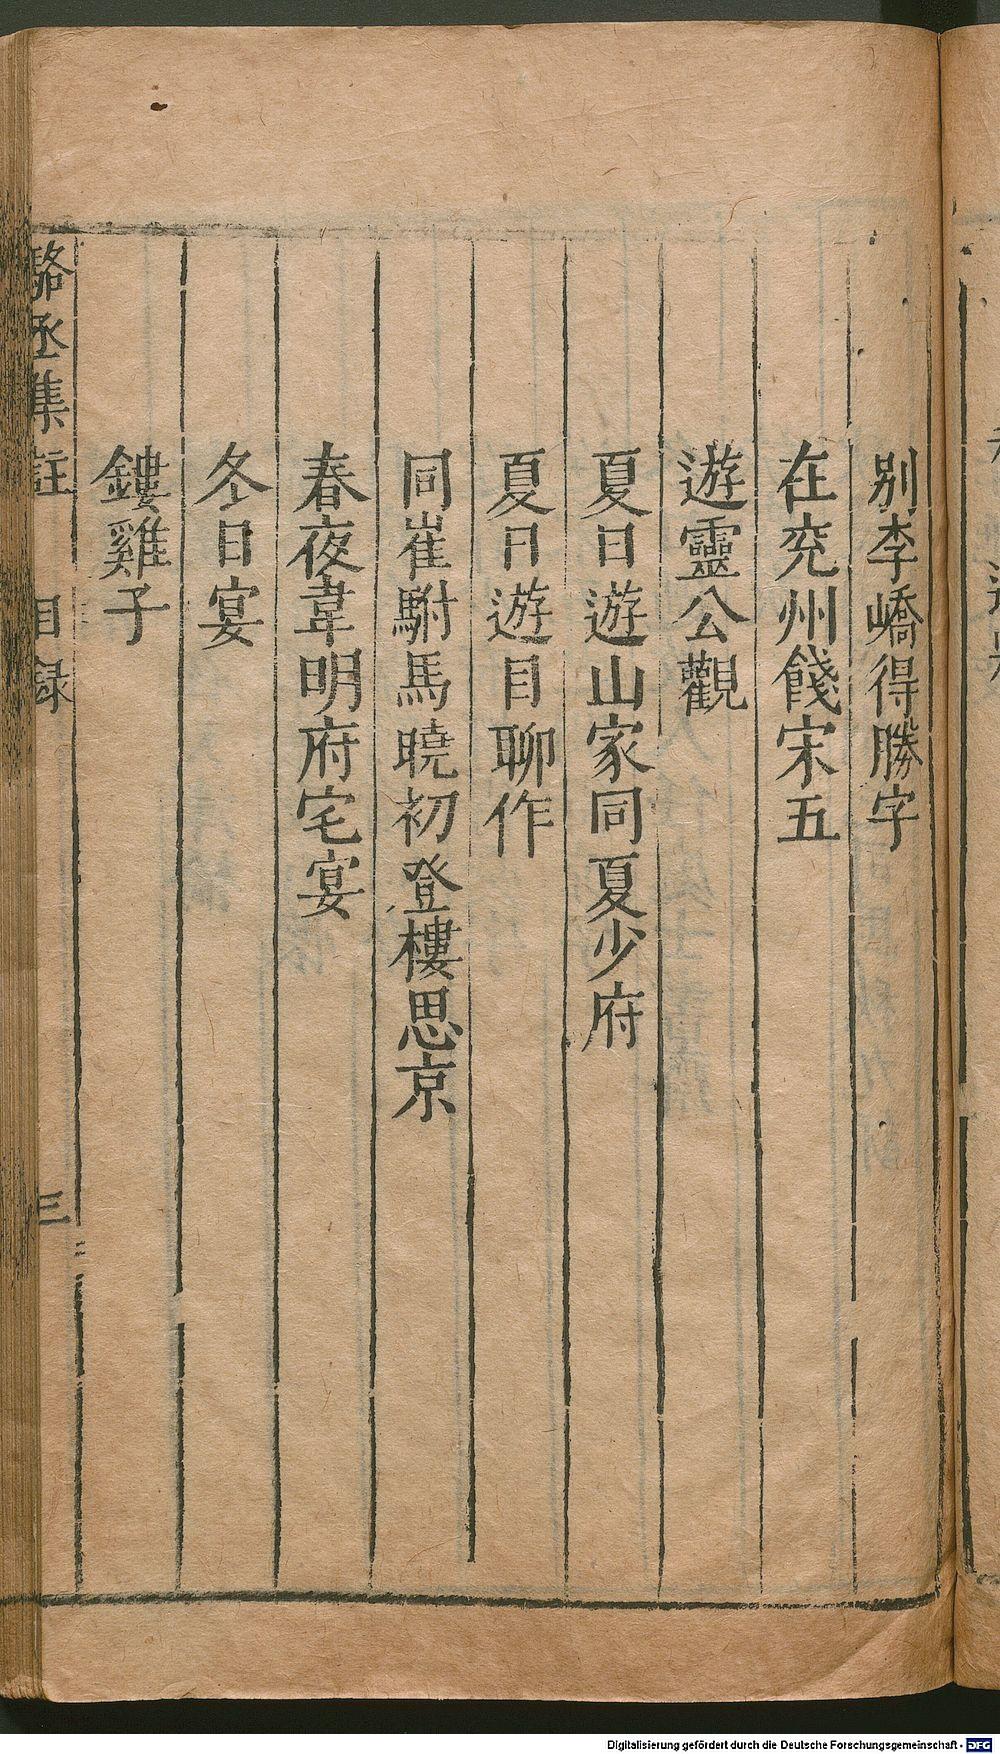 別李嶠得勝字
在兖州餞宋五
遊靈公觀
夏日遊山家同夏少府
夏日遊目聊作
同崔駙馬曉初登樓思京
春夜韋明府宅宴
冬日宴
鏤雞子
駱丞集註 目録 三
Digitalisierung gefördert durch die Deutsche Forschungsgemeinschaft - DFG